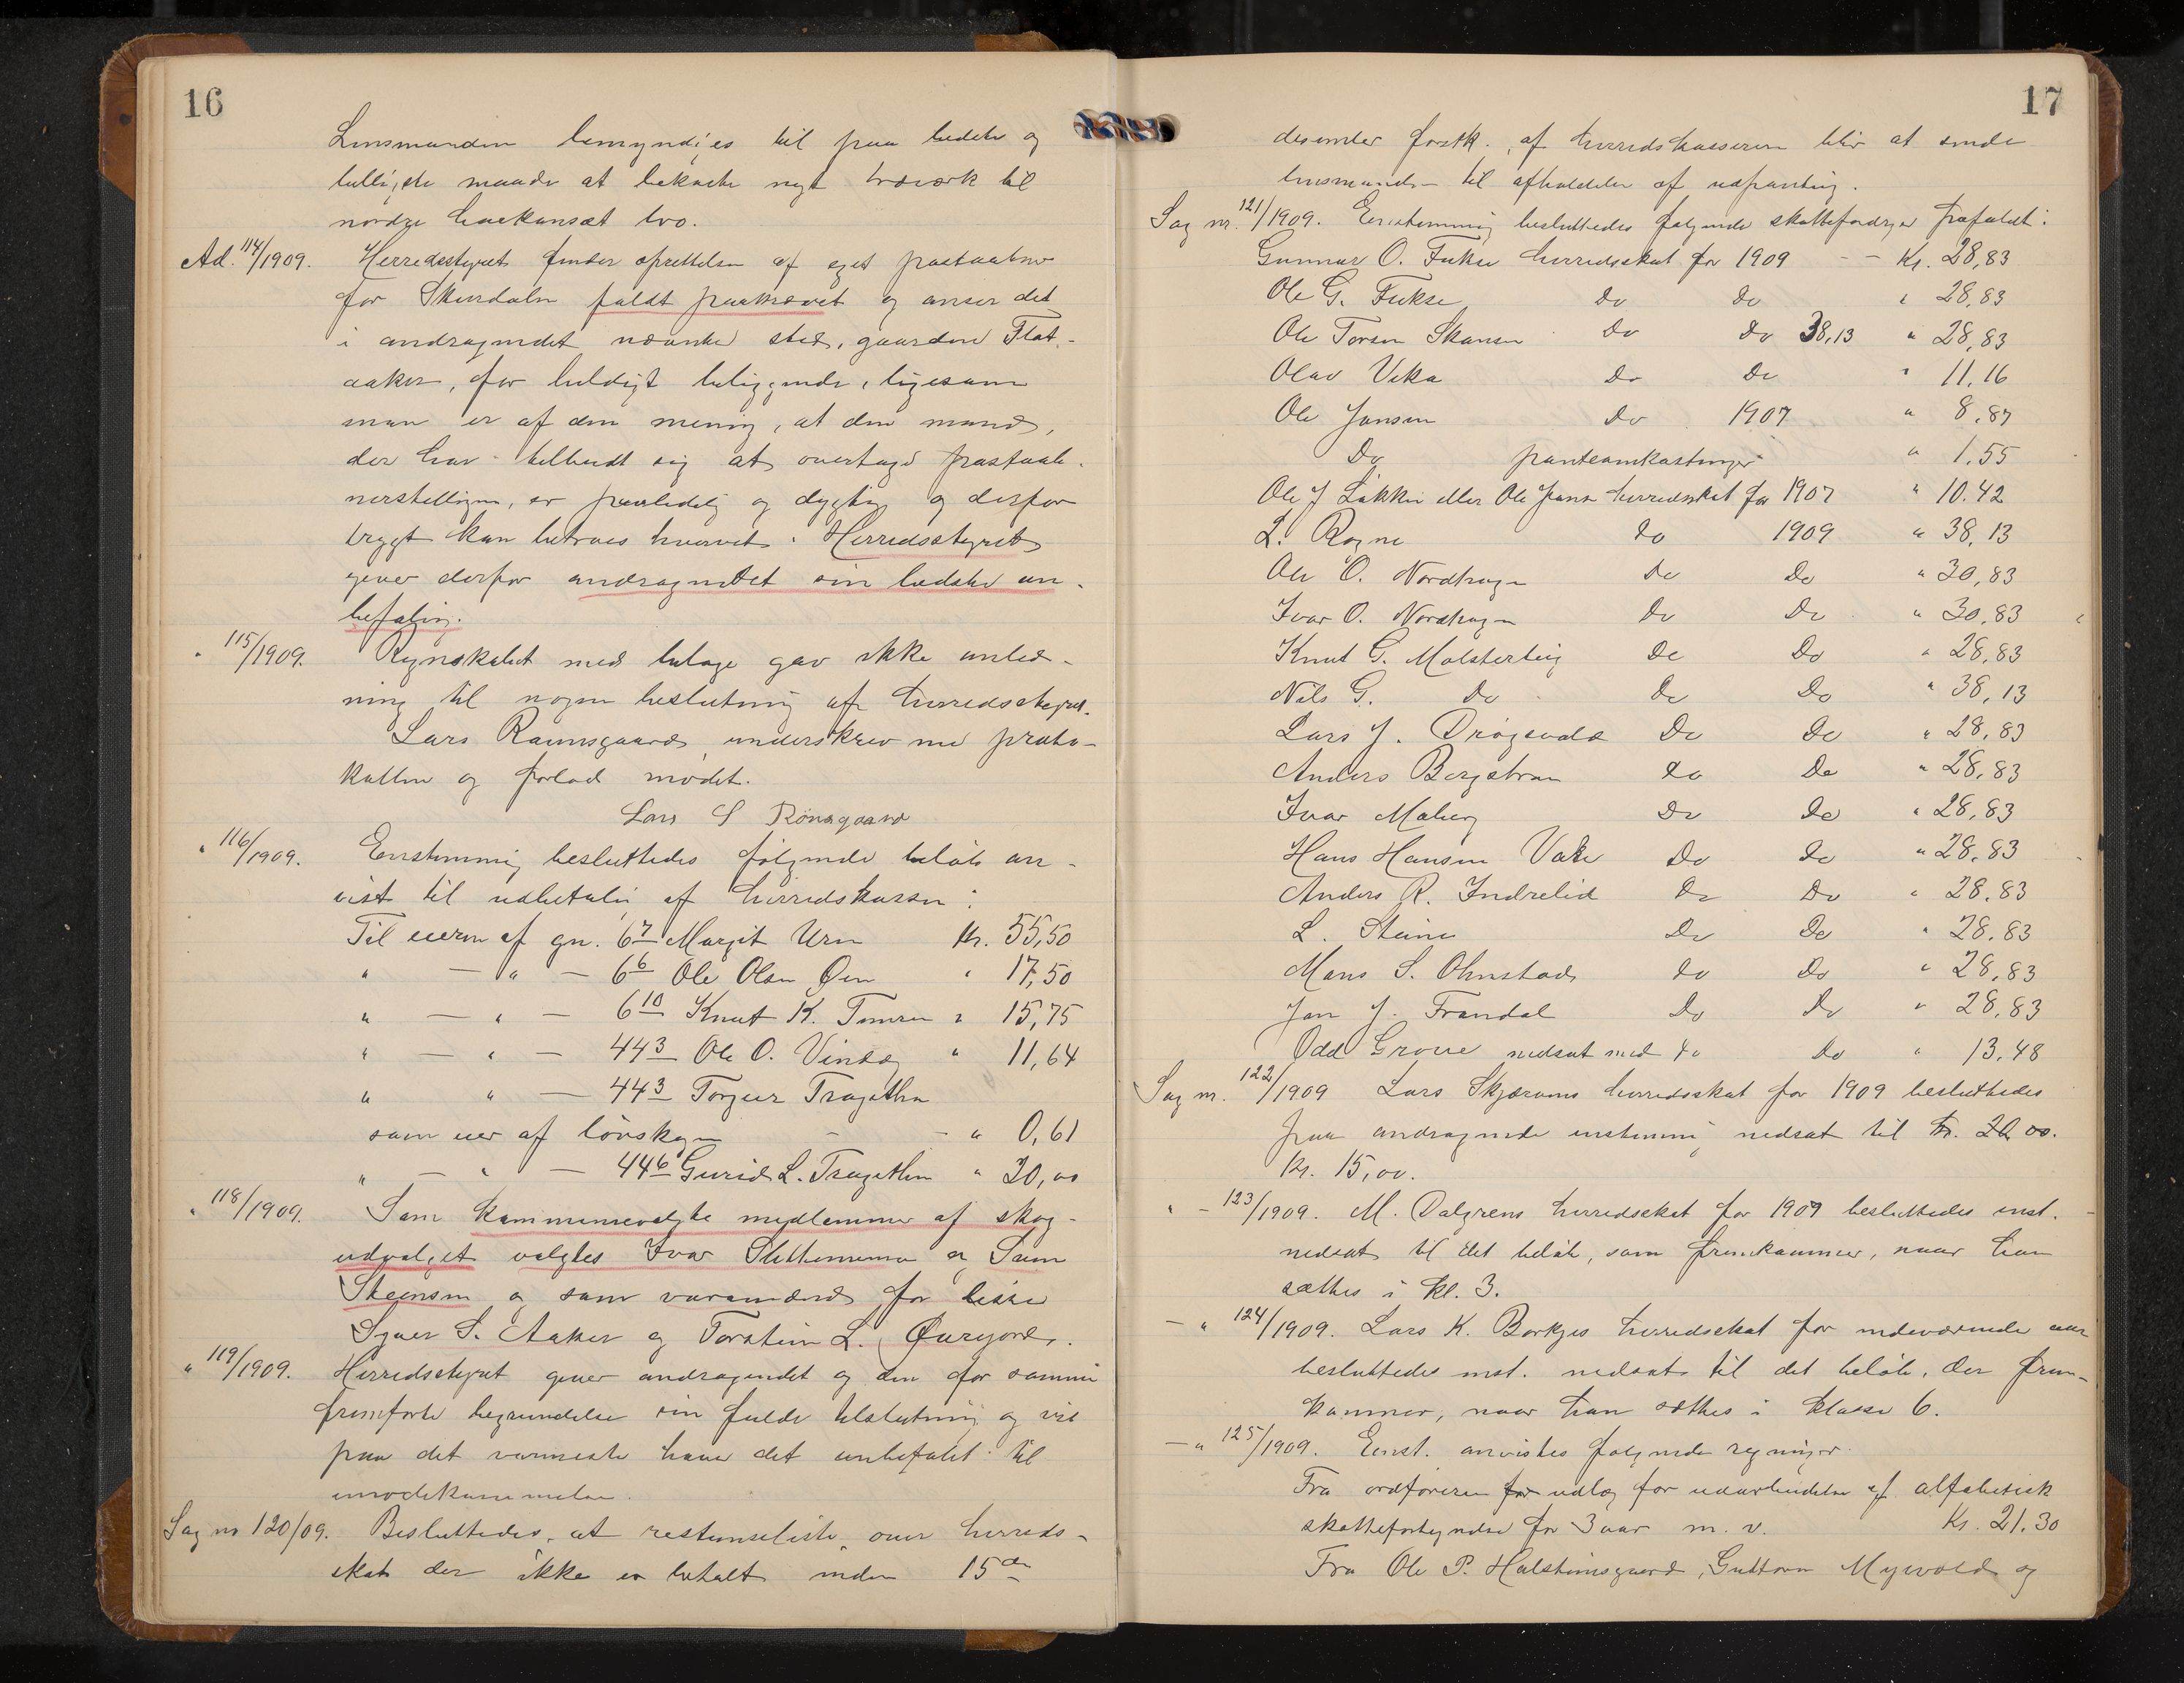 16
Lensmanden bemyndiges til paa bedste og
billigste maade at bekoste nyt træverk til
nordre
Ad. 114/1909. Herredsstyret finder oprettelsen af eget postaabneri
for Skurdalen fuldt paakrævet og anser det
i andragendet nævnte sted, gaarden Flat-
aaker, for heldigt beliggende, ligesom
man er af den mening, at den mand,
der har tilbudt sig at overtage postaab-
nerstillingen, er paalidelig og dygtig og derfor
trygt kan betroes hvervet. Herredsstyret
giver derfor andragendet sin bedste an-
befaling.
" 115/1909. Regnskabet med bilage gav ikke anled-
ning til nogen beslutning af herredsstyret.
Lars Raunsgaard underskrev nu proto-
kollen og forlod mødet.
Lars S Rönsgaard
" 116/1909. Enstemmig besluttedes følgende beløb an-
vist til udbetaling af herredskassen:
Til eieren af gn. 67 Margit Uren Kr. 55,50
" — " — 66 Ole Olsen Øen " 17,50
" — " — 610 Knut K. " 15,75
" — " — 443 Ole O. " 11,64
" " — 443 Torgeir Tragethon
som eier af lövskogen - - " 0,61
" — " — 446 Gurid L. Tragethon " 20,00
" 118/1909. Som kommunevalgte medlemmer af skog-
udvalget valgtes Ivar og
og som varamænd for disse
S. Aaker og Torstein L.
" 119/1909. Herredsstyret giver andragendet og den for samme
fremførte begrundelse sin fulde tilslutning og vil
paa det varmeste have det anbefalet til
imødekommelse.
Sag no 120/09. Besluttedes, at restanseliste over herreds-
skat der ikke er betalt inden 15de
17
desember førstk., af herredskassereren blir at sende
lensmanden til afholdelse af udpanting.
Sag nr. 121/1909. Enstemmig besluttedes følgende skattefordringer frafaldt:
Gunnar O. Fukse herredsskat for 1909 - - Kr. 28,83
Ole G. Fukse do do " 28,83
Ole Torsen Skansen do do 38,13 " 28,83
Olav Veka do do " 11,16
Ole Jonsen do 1907 " 8,87
Do panteomkostninger " 1,55
Ole J Løkken eller Ole Jonsen herredsskat for 1907 " 10.42
L. Rogne do 1909 " 38,13
Ole O. Nordhagen do do " 30,83
Ivar O. Nordhagen do do " 30,83
Knut G. do do " 28,83
Nils G. do do do " 38,13
Lars J. do do " 28,83
Anders Bergstrøm do do " 28,83
Ivar Moberg do do " 28,83
Hans Hansen do do " 28,83
Anders R. Indrelid do do " 28,83
L. Steine do do " 28,83
Mons S. Ohnstad do do " 28,83
Jon J. Frondal do do " 28,83
Odd Grove nedsat med do do " 13,48
Sag nr. 122/1909 Lars Skjærvens herredsskat for 1909 besluttedes
paa andragende enstemmig nedsat til kr. 20 00.
Kr. 15,00.
" - 123/1909. M. Dalgrens herredsskat for 1909 besluttedes enst.
nedsat til det beløb, som fremkommer, naar han
sættes i kl. 3.
- " 124/1909. Lars K. Borkjes herredsskat for indeværende aar
besluttedes enst. nedsat til det beløb, der frem-
kommer, naar han sættes i klasse 6.
- " 125/1909. Enst. anvistes følgende regninger.
Fra ordføreren for udlæg for udarbeidelse af alfabetisk
skattefortegnelse for 3 aar m. v. Kr. 21.30
Fra Ole P. Halsteinsgaard, Guttorm Myrvold og